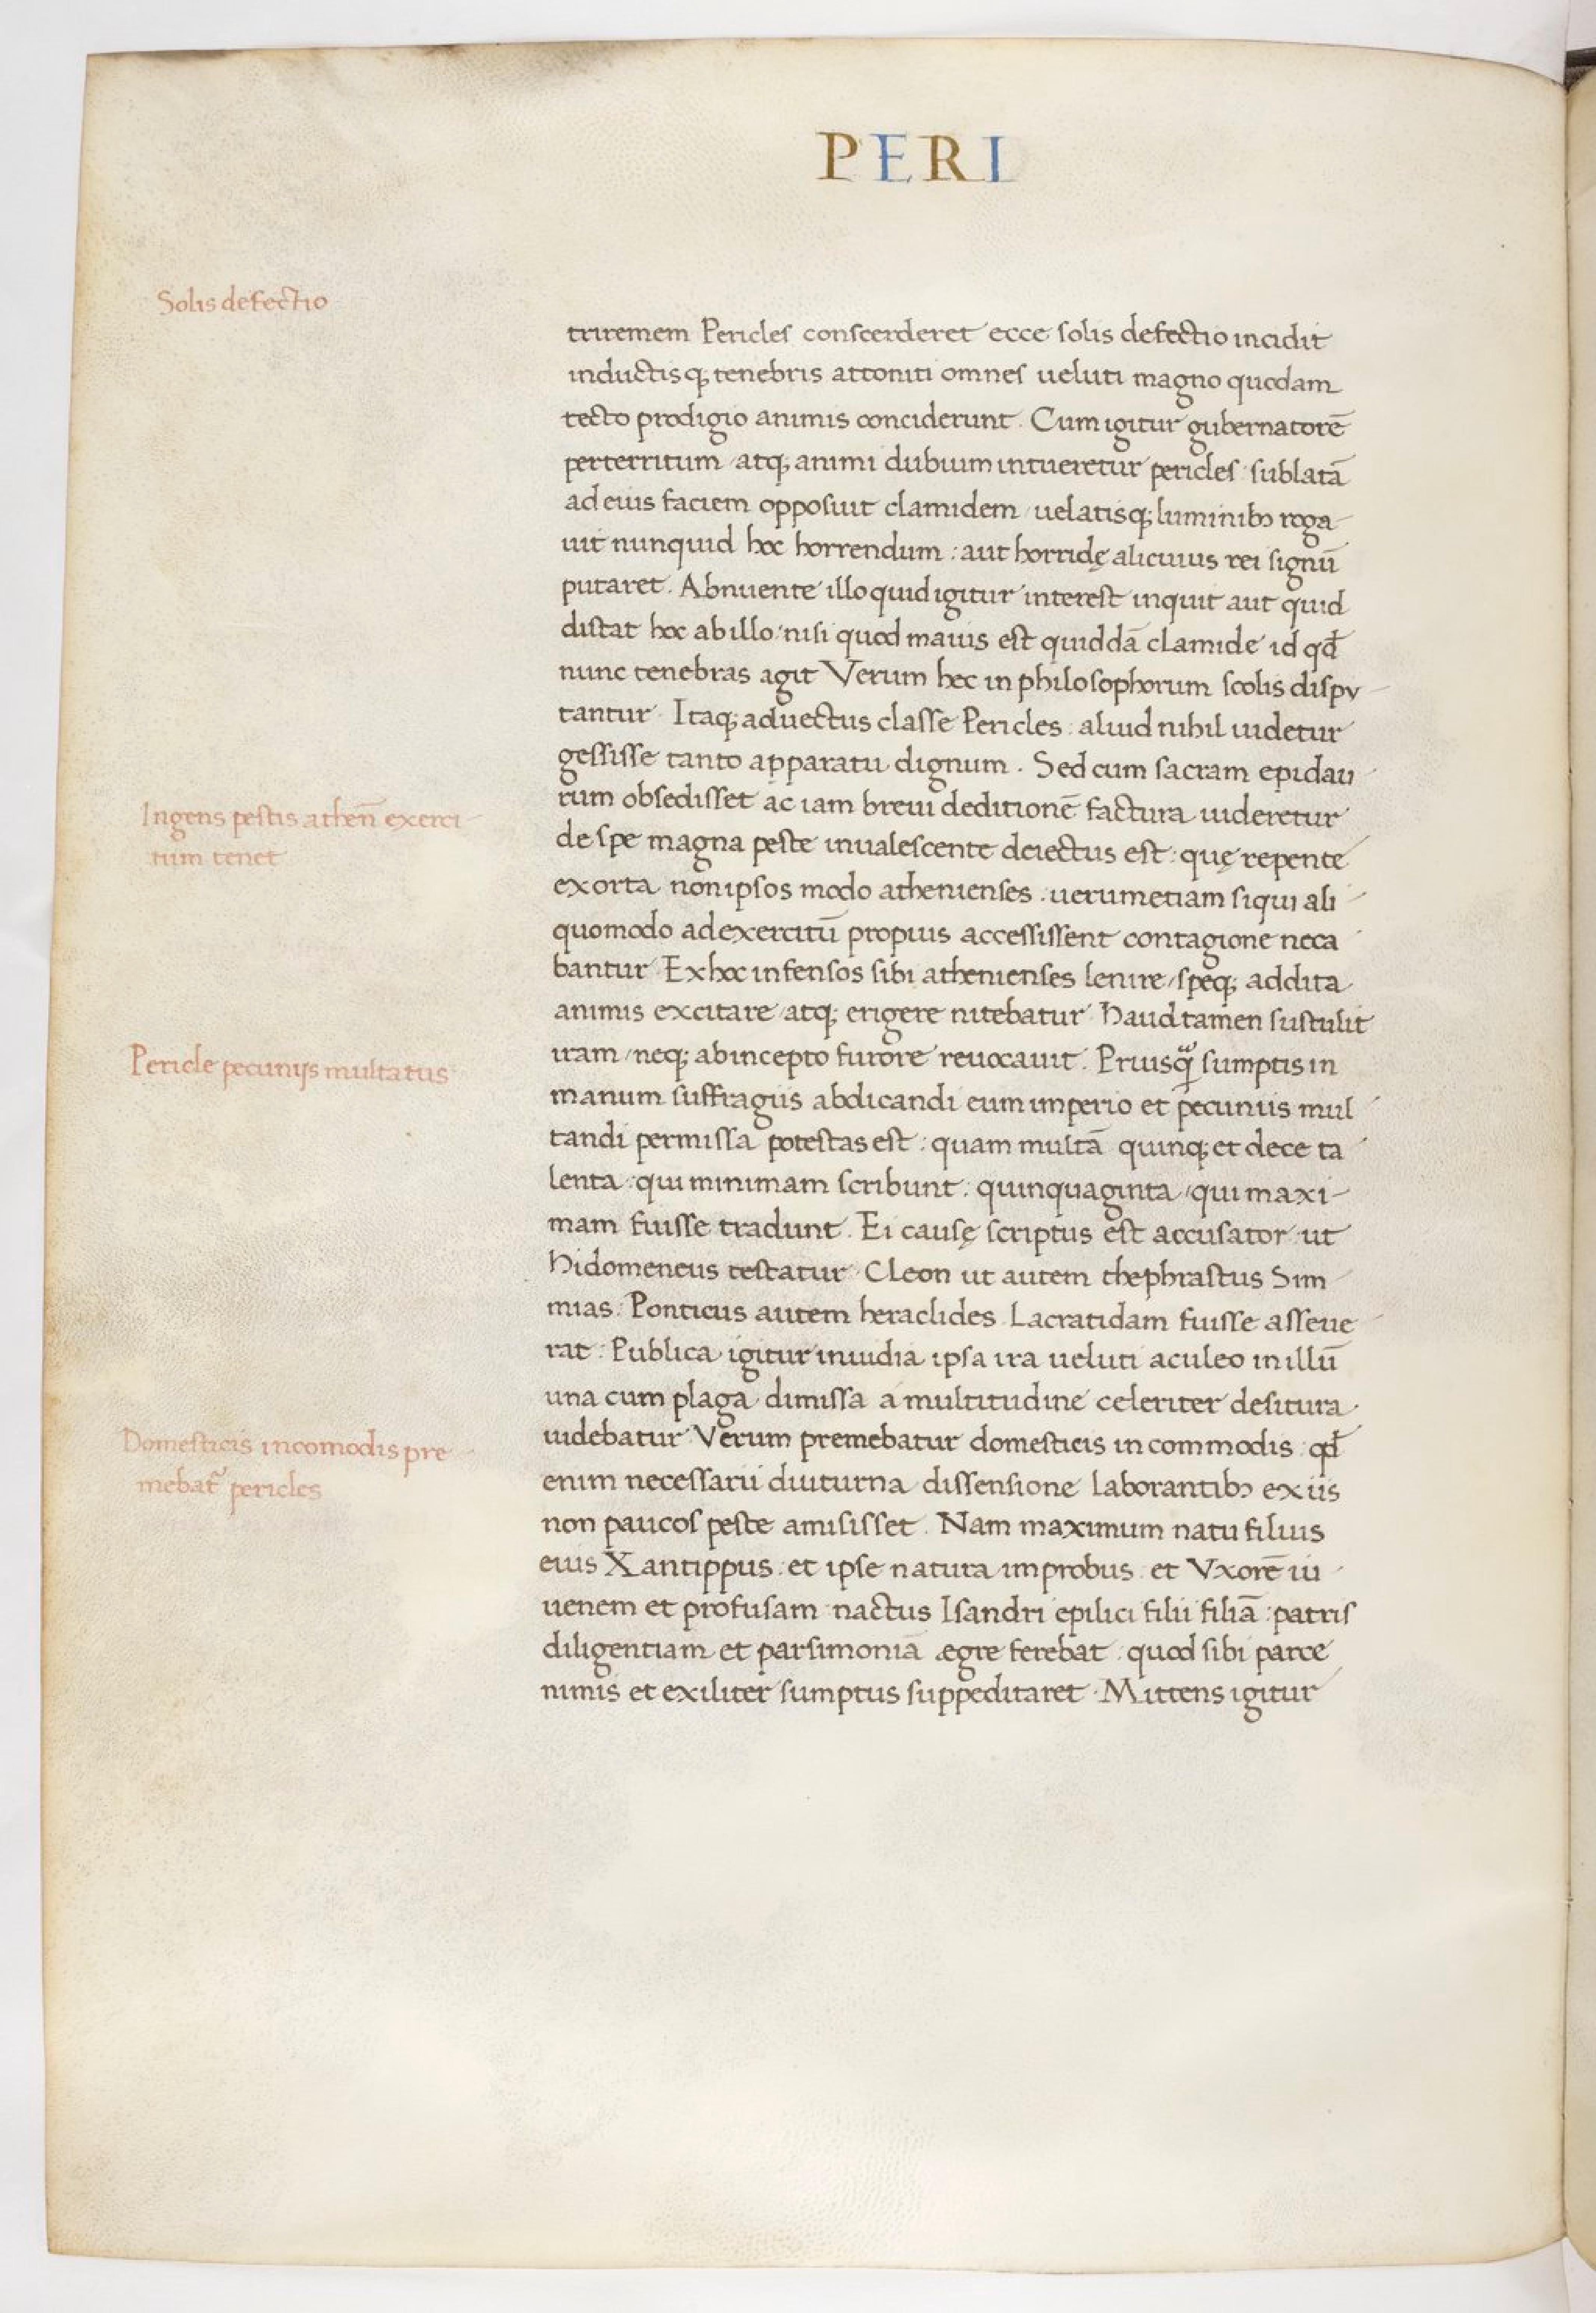 PERI
Solis defectio
triremem Pericles conscerderet ecce solis defectio incidit
inductisq; tenebris attoniti omnes ueluti magno quodam
tecto prodigio animis conciderunt. Cum igitur gubernatorē
perterritum atq; animi dubium intueretur pericles sublatā
ad eius faciem opposuit clamidem uelatisq; luminibꝫ roga
uit nunquid hoc horrendum: aut horridę alicuius rei signū
putaret. Abnuente illo quid igitur interest inquit aut quid
distat hoc ab illo: nisi quod maius est quiddā clamide id qđ
nunc tenebras agit Verum hec in philosophorum scolis dispv
tantur. Itaq; aduectus classe Pericles: aliud nihil uidetur
gessisse tanto apparatu dignum. Sed cum sacram epidau
rum obsedisset ac iam breui deditionē factura uideretur
Ingens pestis atheñ exerci
tum tenet
de spe magna peste inualescente deiectus est: quę repente
exorta non ipsos modo athenienses. uerum etiam siqui ali
quomodo ad exercitū propius accessissent contagione neca
bantur. Ex hoc infensos sibi athenienses lenire, speq; addita
animis excitare atq; erigere nitebatur. Haud tamen sustulit
Pericle pecunijs multatus
iram, neq; ab incepto furore reuocauit. Priusq̃ sumptis in
manum suffragiis abdicandi eum imperio et pecuniis mul
tandi permissa potestas est: quam multā quinq; et dece ta
lenta: qui minimam scribunt: quinquaginta, qui maxi-
mam fuisse tradunt. Ei causę scriptus est accusator ut
Hidomeneus testatur. Cleon ut autem thephrastus Sim
mias. Ponticus autem heraclides Lacratidam fuisse asseue
rat: Publica igitur inuidia ipsa ira ueluti aculeo in illū
una cum plaga dimissa a multitudine celeriter desitura
Domesticis incomodis pre
mebat᷑ pericles
uidebatur. Verum premebatur domesticis in commodis: qđ
enim necessarii diuturna dissensione laborantibꝫ ex iis
non paucos peste amisisset. Nam maximum natu filius
eius Xantippus: et ipse natura improbus: et Vxorē iu
uenem et profusam nactus Isandri epilici filii filiā: patris
diligentiam et parsimoniā ægre ferebat: quod sibi parce
nimis et exiliter sumptus suppeditaret. Mittens igitur